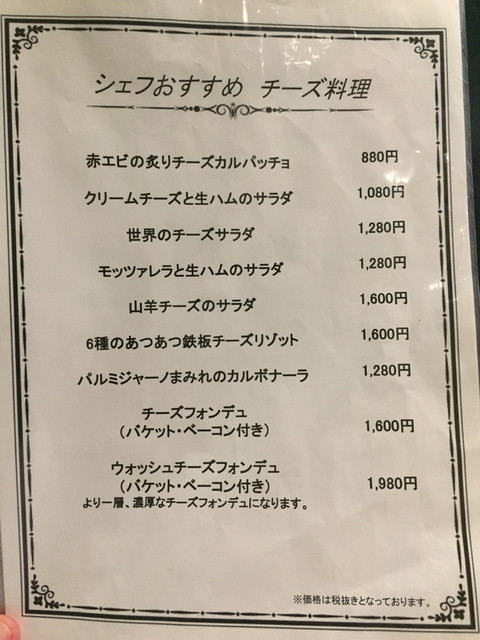 シェフおすすめ チーズ料理
赤エビの炙りチーズカルパッチョ 880円
クリームチーズと生ハムのサラダ 1,080円
世界のチーズサラダ 1,280円
モッツァレラと生ハムのサラダ 1,280円
山羊チーズのサラダ 1,600円
6種のあつあつ鉄板チーズリゾット 1,600円
パルミジャーノまみれのカルボナーラ 1,280円
チーズフォンデュ
（バケット・ベーコン付き） 1,600円
ウォッシュチーズフォンデュ
（バケット・ベーコン付き） 1,980円
より一層、濃厚なチーズフォンデュになります。
※価格は税抜きとなっております。